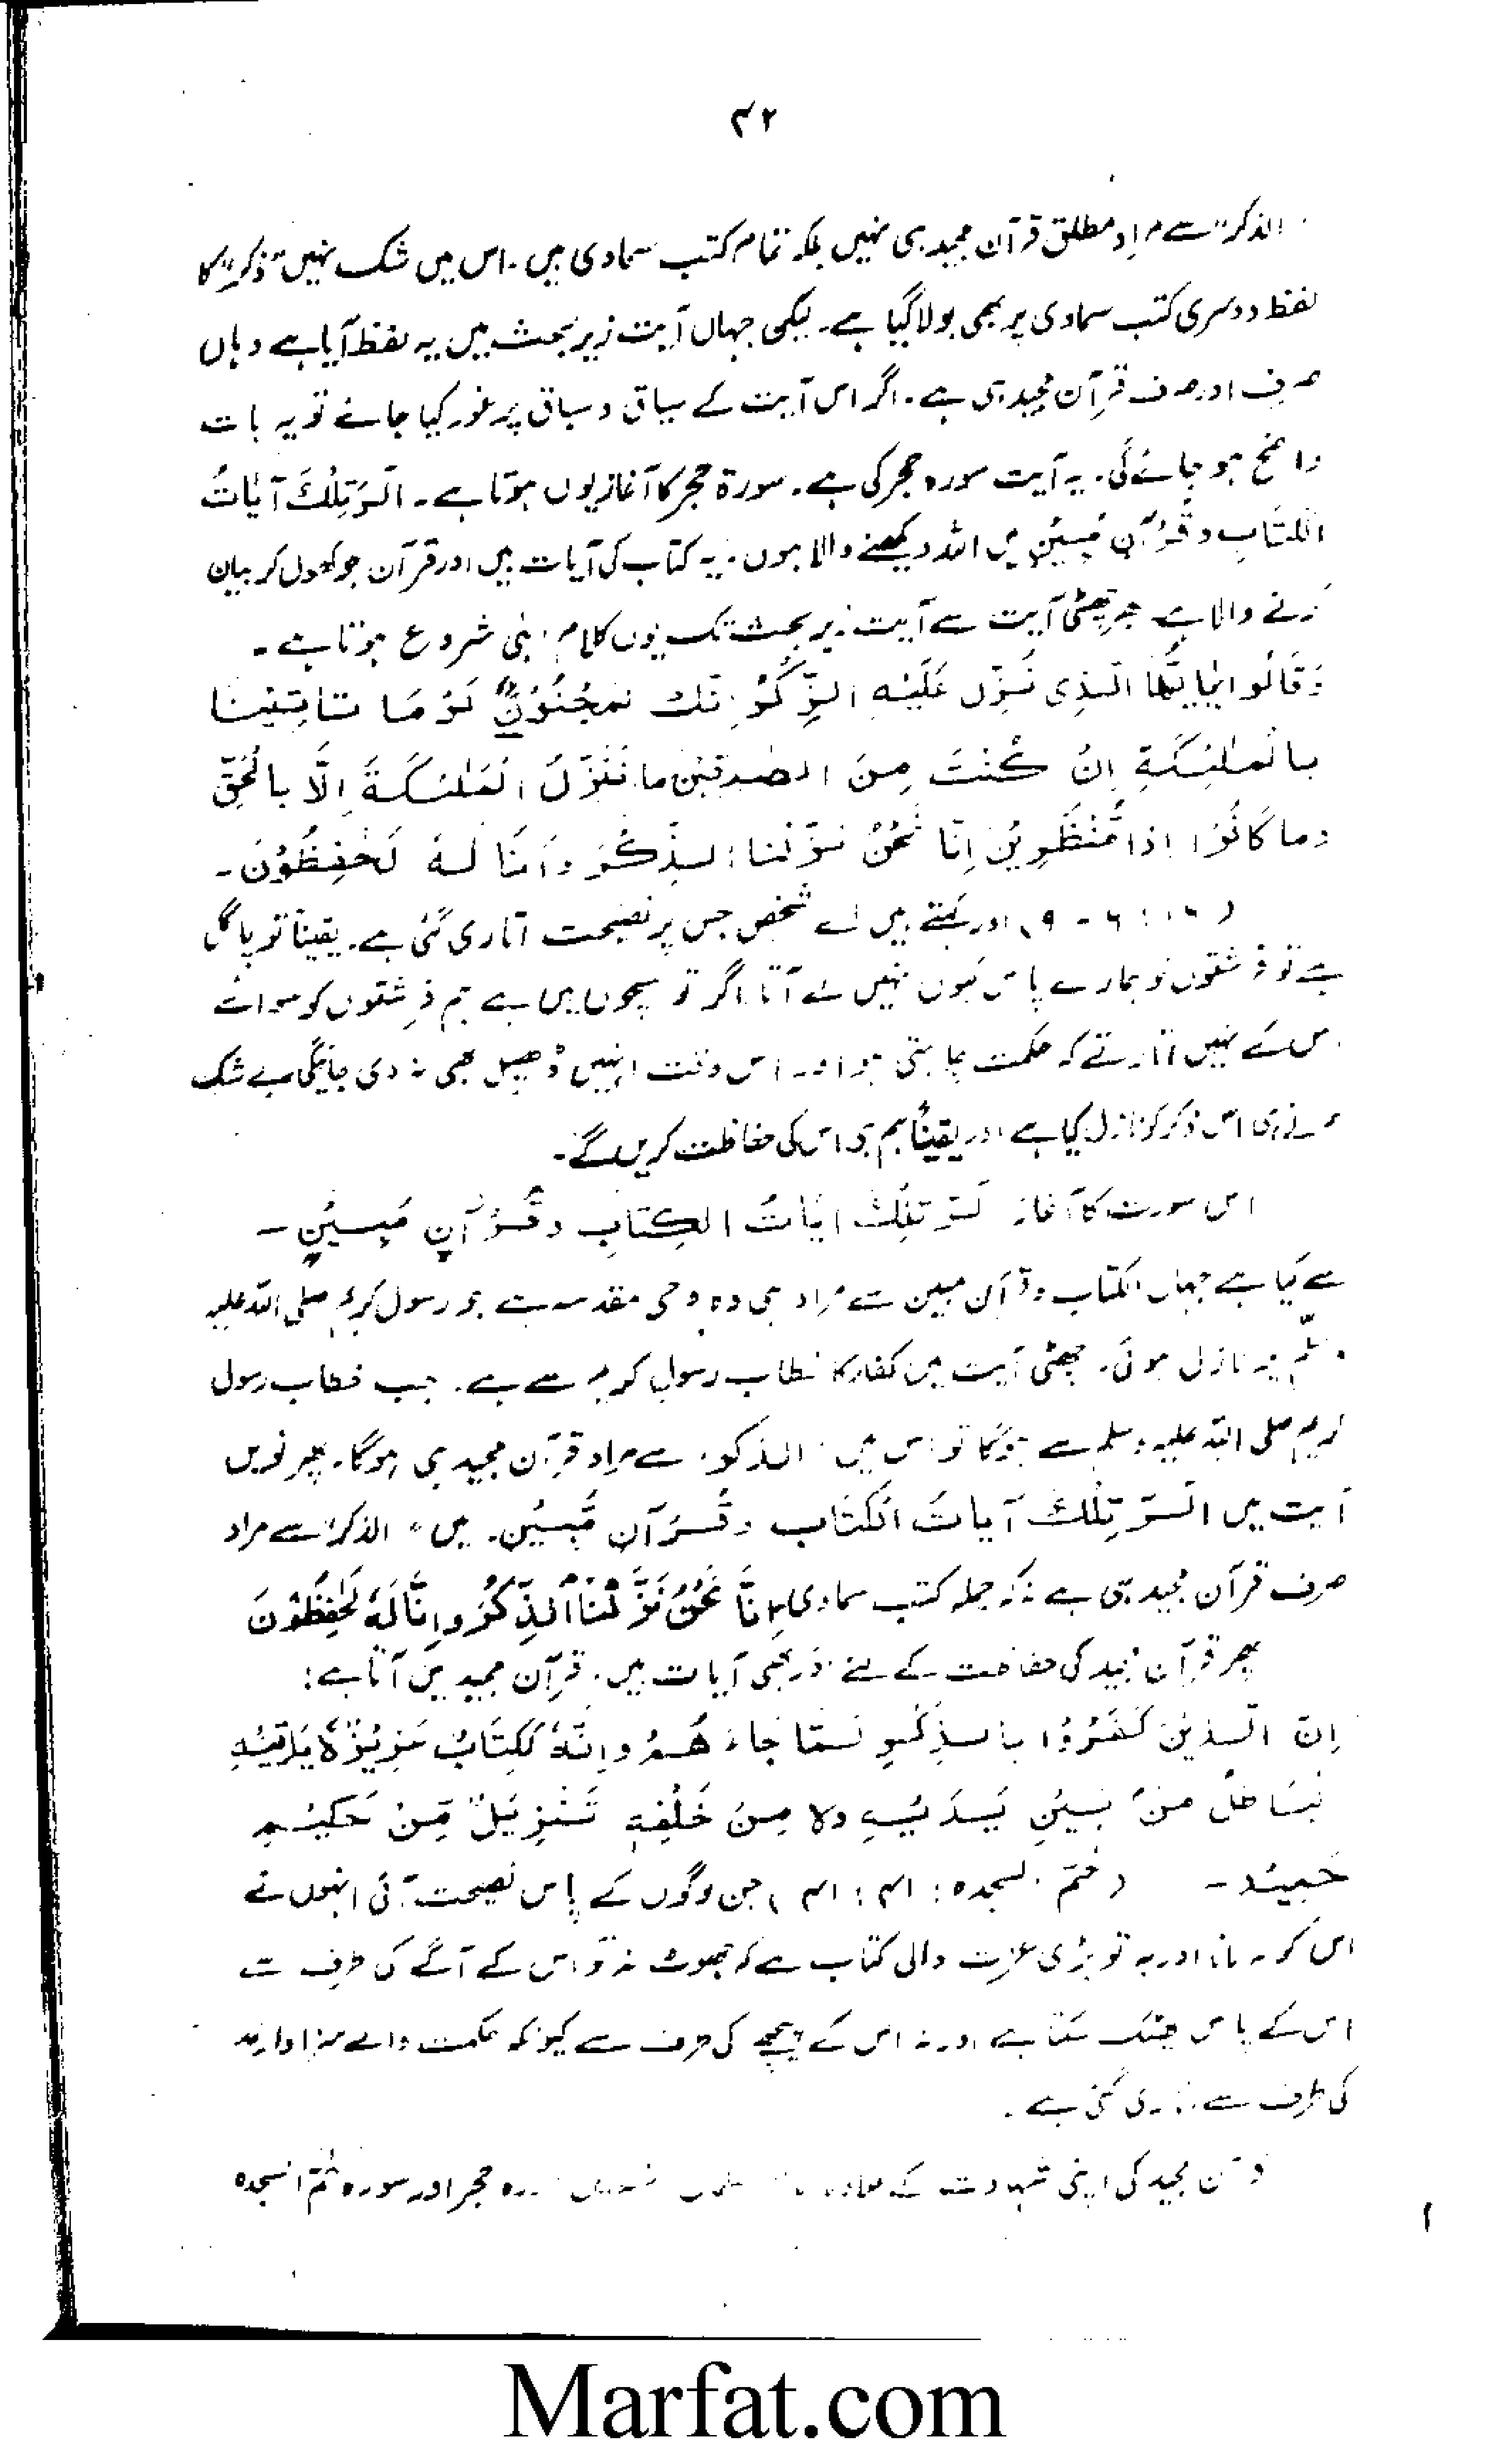 ۴۲
الذکر" سے مراد مطلق قرآن مجید ہی نہیں بلکہ تمام کتب سماوی ہیں۔ اس میں شک نہیں "ذکر" کا
لفظ دوسری کتب سماوی پر بھی بولا گیا ہے۔ لیکن جہاں آیت زیر بحث میں یہ لفظ آیا ہے وہاں
صرف اور صرف قرآن مجید ہی ہے۔ اگر اس آیت کے سیاق و سباق پر غور کیا جائے تو یہ بات
واضح ہو جائے گی۔ یہ آیت سورہ حجر کی ہے۔ سورۃ حجر کا آغاز یوں ہوتا ہے۔ الٓرٰ تِلْكَ آیَاتُ
الْكِتَابِ وَقُرْآنٍ مُّبِیْنٍ میں اللہ دیکھنے والا ہوں۔ یہ کتاب کی آیات ہیں اور قرآن جو کھول کر بیان
کرنے والا ہے۔ پھر چھٹی آیت سے آیت زیر بحث تک یوں کلام الٰہی شروع ہوتا ہے۔
وَقَالُوا یٰاَیُّهَا الَّذِی نُزِّلَ عَلَیْهِ الذِّكْرُ اِنَّكَ لَمَجْنُوْنٌ لَوْ مَا تَاْتِیْنَا
بِالْمَلٰئِكَةِ اِنْ كُنْتَ مِنَ الصّٰدِقِیْن مَا نُنَزِّلُ الْمَلٰئِكَةَ اِلَّا بِالْحَقِّ
وما كَانُوْا اِذًا مُّنْظَرِیْن اِنَّا نَحْنُ نَزَّلْنَا الذِّكْرَ وَاِنَّا لَهٗ لَحٰفِظُوْنَ۔
(۱۶ : ۶ - ۹) اور کہتے ہیں اے شخص جس پر نصیحت اتاری گئی ہے۔ یقیناً تو پاگل
ہے تو فرشتوں کو ہمارے پاس کیوں نہیں لے آتا اگر تو سچوں میں ہے ہم فرشتوں کو سوائے
اس کے نہیں اتارتے کہ حکمت چاہتی ہو اور اس وقت انہیں ڈھیل بھی نہ دی جائیگی بے شک
ہم نے ہی اس ذکر کو نازل کیا ہے اور یقیناً ہم ہی اس کی حفاظت کریں گے۔
اس سورت کا آغاز الٓرٰ تِلْكَ اٰیَاتُ الْكِتَابِ وَقُرْآنٍ مُّبِیْنٍ۔
سے کیا ہے جہاں الکتاب وقرآن مبین سے مراد ہی وہ وحی مقدسہ ہے جو رسول کریم صلی اللہ علیہ
وسلم پر نازل ہوئی۔ چھٹی آیت میں کفار کا خطاب رسول کریم سے ہے۔ جب خطاب رسول
کریم صلی اللہ علیہ وسلم سے ہوگا تو اس میں "الذکر" سے مراد قرآن مجید ہی ہوگا۔ پھر نویں
آیت میں الٓرٰ تِلْكَ آیَاتُ الْكِتَاب وَقُرْآن مُّبِیْن۔ میں "الذکر" سے مراد
صرف قرآن مجید ہی ہے نہ کہ جملہ کتب سماوی اِنَّا نَحْنُ نَزَّلْنَا الذِّكْرَ وَاِنَّا لَهٗ لَحٰفِظُوْنَ
پھر قرآن مجید کی حفاظت کے لئے اور بھی آیات ہیں۔ قرآن مجید میں آتا ہے:
اِنَّ الَّذِیْنَ كَفَرُوْا بِالذِّكْرِ لَمَّا جَاءَهُمْ وَاِنَّهٗ لَكِتَابٌ عَزِیْزٌ لَّا یَاْتِیْهِ
الْبَاطِلُ مِنْ بَیْنِ یَدَیْهِ وَلَا مِنْ خَلْفِهٖ تَنْزِیْلٌ مِّنْ حَكِیْمٍ
حَمِیْدٍ۔ (حٰمٓ السجدہ : ۴۱ : ۴۱) جن لوگوں کے پاس نصیحت آئی انہوں نے
اس کو نہ مانا اور یہ تو بڑی عزت والی کتاب ہے کہ جھوٹ نہ تو اس کے آگے کی طرف سے
اس کے پاس پھٹک سکتا ہے اور نہ اس کے پیچھے کی طرف سے کیونکہ حکمت والے سزاوار حمد
کی طرف سے اتاری گئی ہے۔
قرآن مجید کی اپنی شہادت کے علاوہ سورہ حجر اور سورہ حٰمٓ السجدہ
Marfat.com